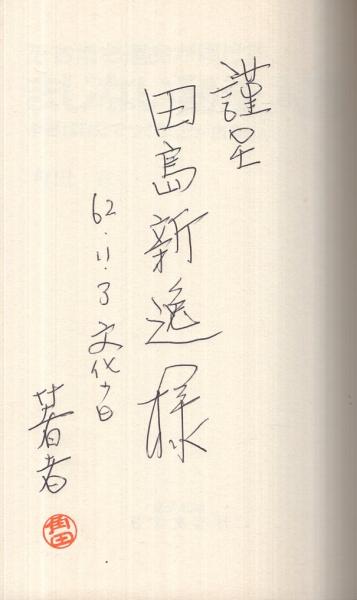 謹呈
田島新逸様
62.11.3 文化の日
著者
角田